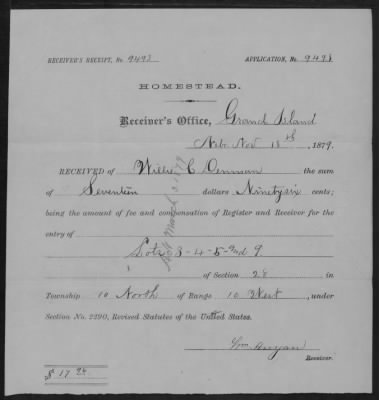 RECEIVER'S RECEIPT, No. 9493 APPLICATION, No. 9493
HOMESTEAD.
Receiver's Office, Grand Island
Neb. Nov 15th, 1879.
RECEIVED of Willie C Denman the sum
of Seventeen dollars Ninety six cents;
being the amount of fee and compensation of Register and Receiver for the
entry of
Lots 3-4-5-and 9
of Section 28 in
Township 10 North of Range 10 West, under
Section No. 2290, Revised Statutes of the United States.
Wm Anyan
Receiver.
$ 17.96
March 3, 1879